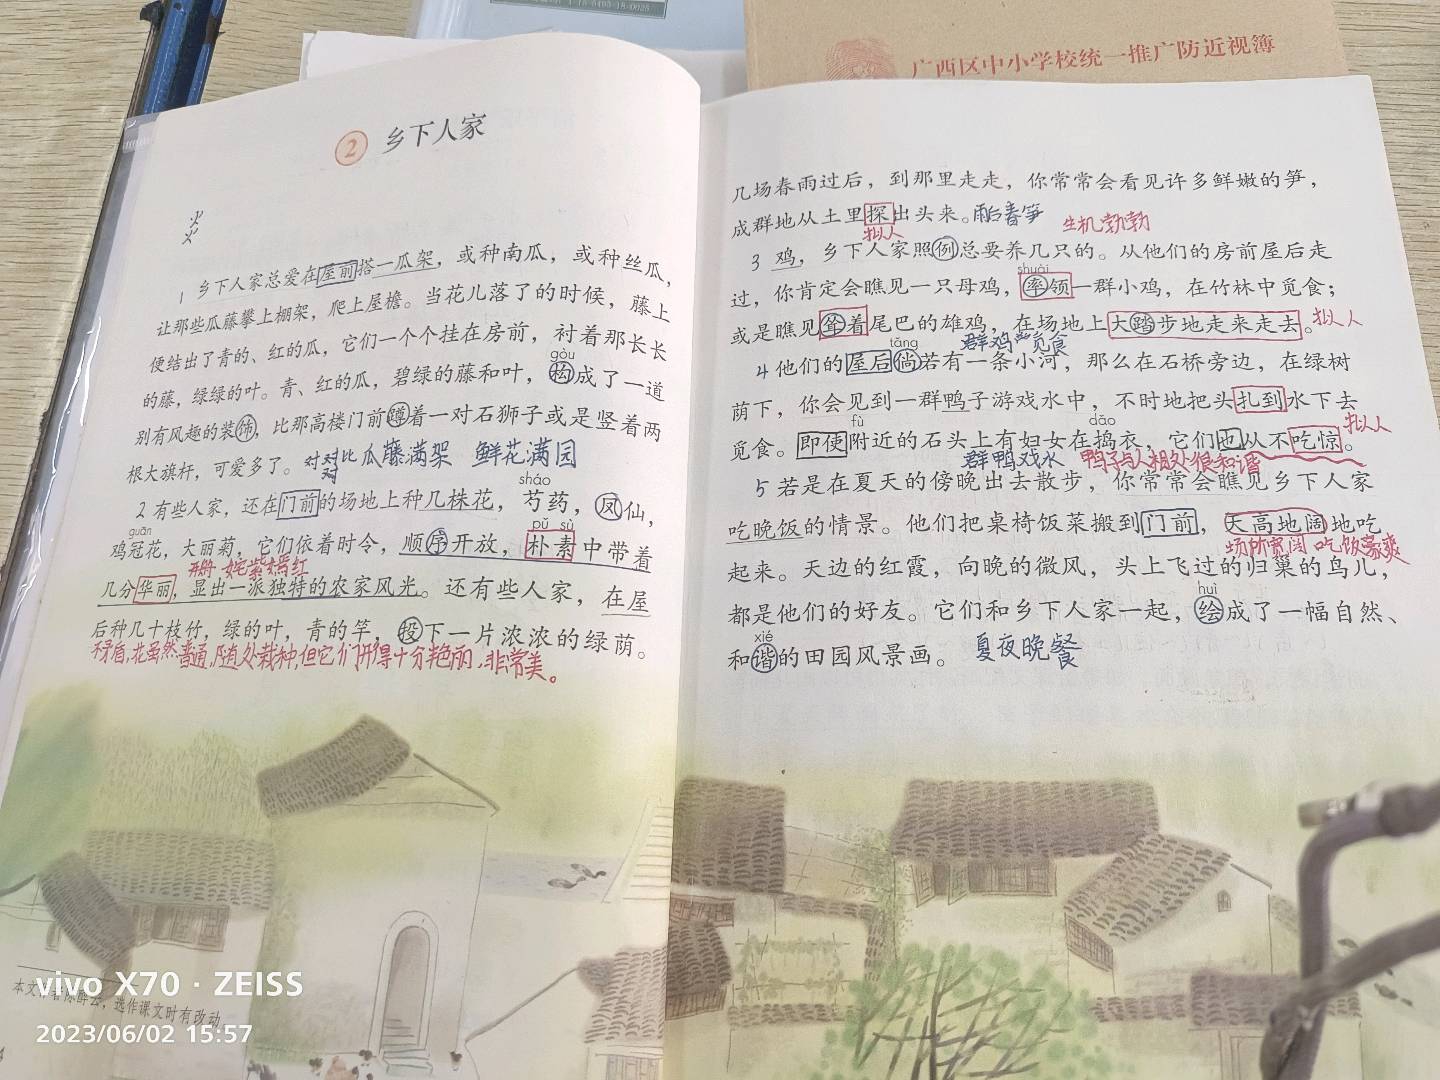 广西区中小学校统一推广防近视簿
2 乡下人家
1 乡下人家总爱在屋前搭一瓜架，或种南瓜，或种丝瓜，
让那些瓜藤攀上棚架，爬上屋檐。当花儿落了的时候，藤上
便结出了青的、红的瓜，它们一个个挂在房前，衬着那长长
gòu
的藤，绿绿的叶。青、红的瓜，碧绿的藤和叶，构成了一道
别有风趣的装饰，比那高楼门前蹲着一对石狮子或是竖着两
根大旗杆，可爱多了。对比 瓜藤满架 鲜花满园
sháo
2 有些人家，还在门前的场地上种几株花，芍药，凤仙，
guān pǔ sù
鸡冠花，大丽菊，它们依着时令，顺序开放，朴素中带着
姹紫嫣红
几分华丽，显出一派独特的农家风光。还有些人家，在屋
后种几十枝竹，绿的叶，青的竿，投下一片浓浓的绿荫。
矛盾，花虽然普通，随处栽种，但它们开得十分艳丽，非常美。
几场春雨过后，到那里走走，你常常会看见许多鲜嫩的笋，
成群地从土里探出头来。雨后春笋 生机勃勃
拟人
3 鸡，乡下人家照例总要养几只的。从他们的房前屋后走
shuài
过，你肯定会瞧见一只母鸡，率领一群小鸡，在竹林中觅食；
或是瞧见耸着尾巴的雄鸡，在场地上大踏步地走来走去。拟人
tǎng 群鸡觅食
4 他们的屋后倘若有一条小河，那么在石桥旁边，在绿树
荫下，你会见到一群鸭子游戏水中，不时地把头扎到水下去
fù dǎo 拟人
觅食。即使附近的石头上有妇女在捣衣，它们也从不吃惊。
群鸭戏水 鸭子与人相处很和谐
5 若是在夏天的傍晚出去散步，你常常会瞧见乡下人家
吃晚饭的情景。他们把桌椅饭菜搬到门前，天高地阔地吃
场所宽阔 吃饭豪爽
起来。天边的红霞，向晚的微风，头上飞过的归巢的鸟儿，
huì
都是他们的好友。它们和乡下人家一起，绘成了一幅自然、
xié
和谐的田园风景画。 夏夜晚餐
vivo X70 · ZEISS
选作课文时有改动
2023/06/02 15:57